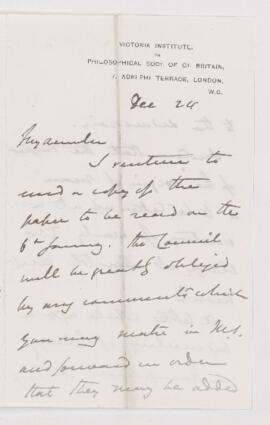 VICTORIA INSTITUTE,
OR
PHILOSOPHICAL SOCY OF GT BRITAIN,
7, ADELPHI TERRACE, LONDON,
W.C.
Dec 24
My dear Sir
I venture to
send a copy of the
paper to be read on the
6th January. The Council
will be greatly obliged
by any comments which
you may make in MS.
and forward in order
that they may be added